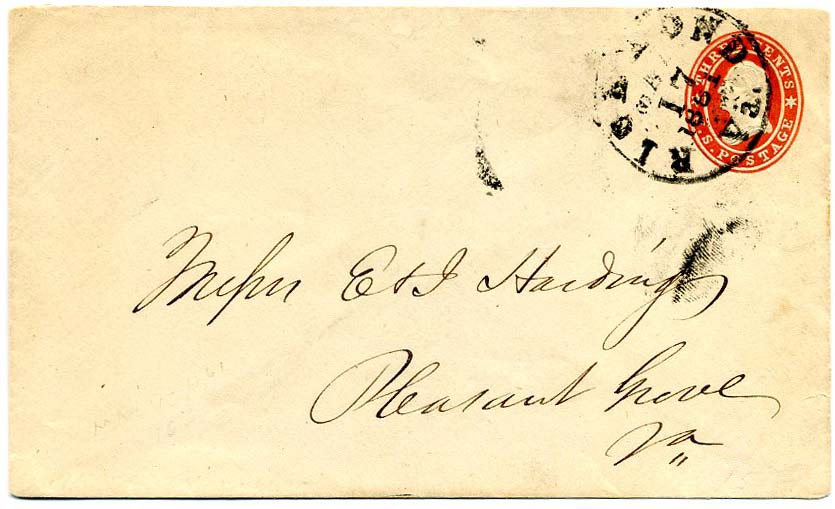 THREE CENTS
U.S. POSTAGE
RICHMOND Va.
17
1861
Messrs E & J Hardings
Pleasant Grove
Va